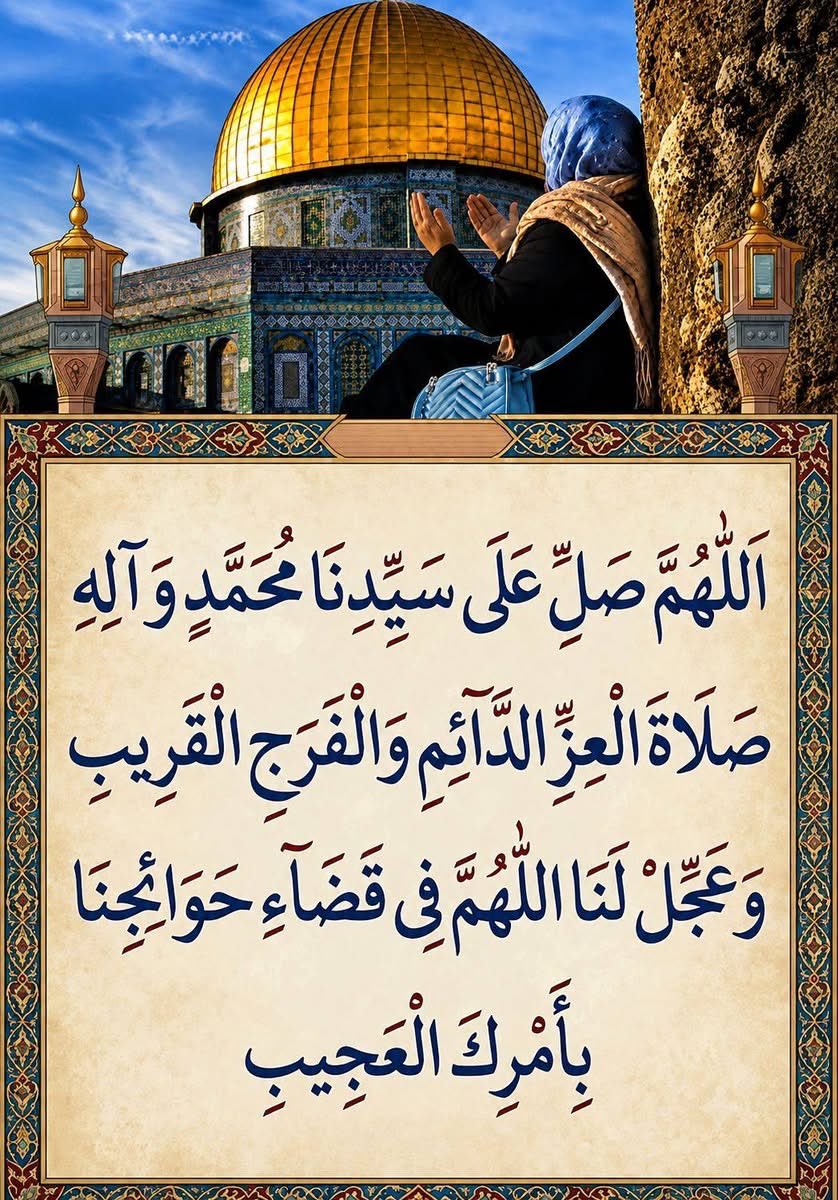 اَللّٰهُمَّ صَلِّ عَلَى سَيِّدِنَا مُحَمَّدٍ وَآلِهِ
صَلَاةَ الْعِزِّ الدَّآئِمِ وَالْفَرَجِ الْقَرِيبِ
وَعَجِّلْ لَنَا اللّٰهُمَّ فِي قَضَآءِ حَوَائِجِنَا
بِأَمْرِكَ الْعَجِيبِ